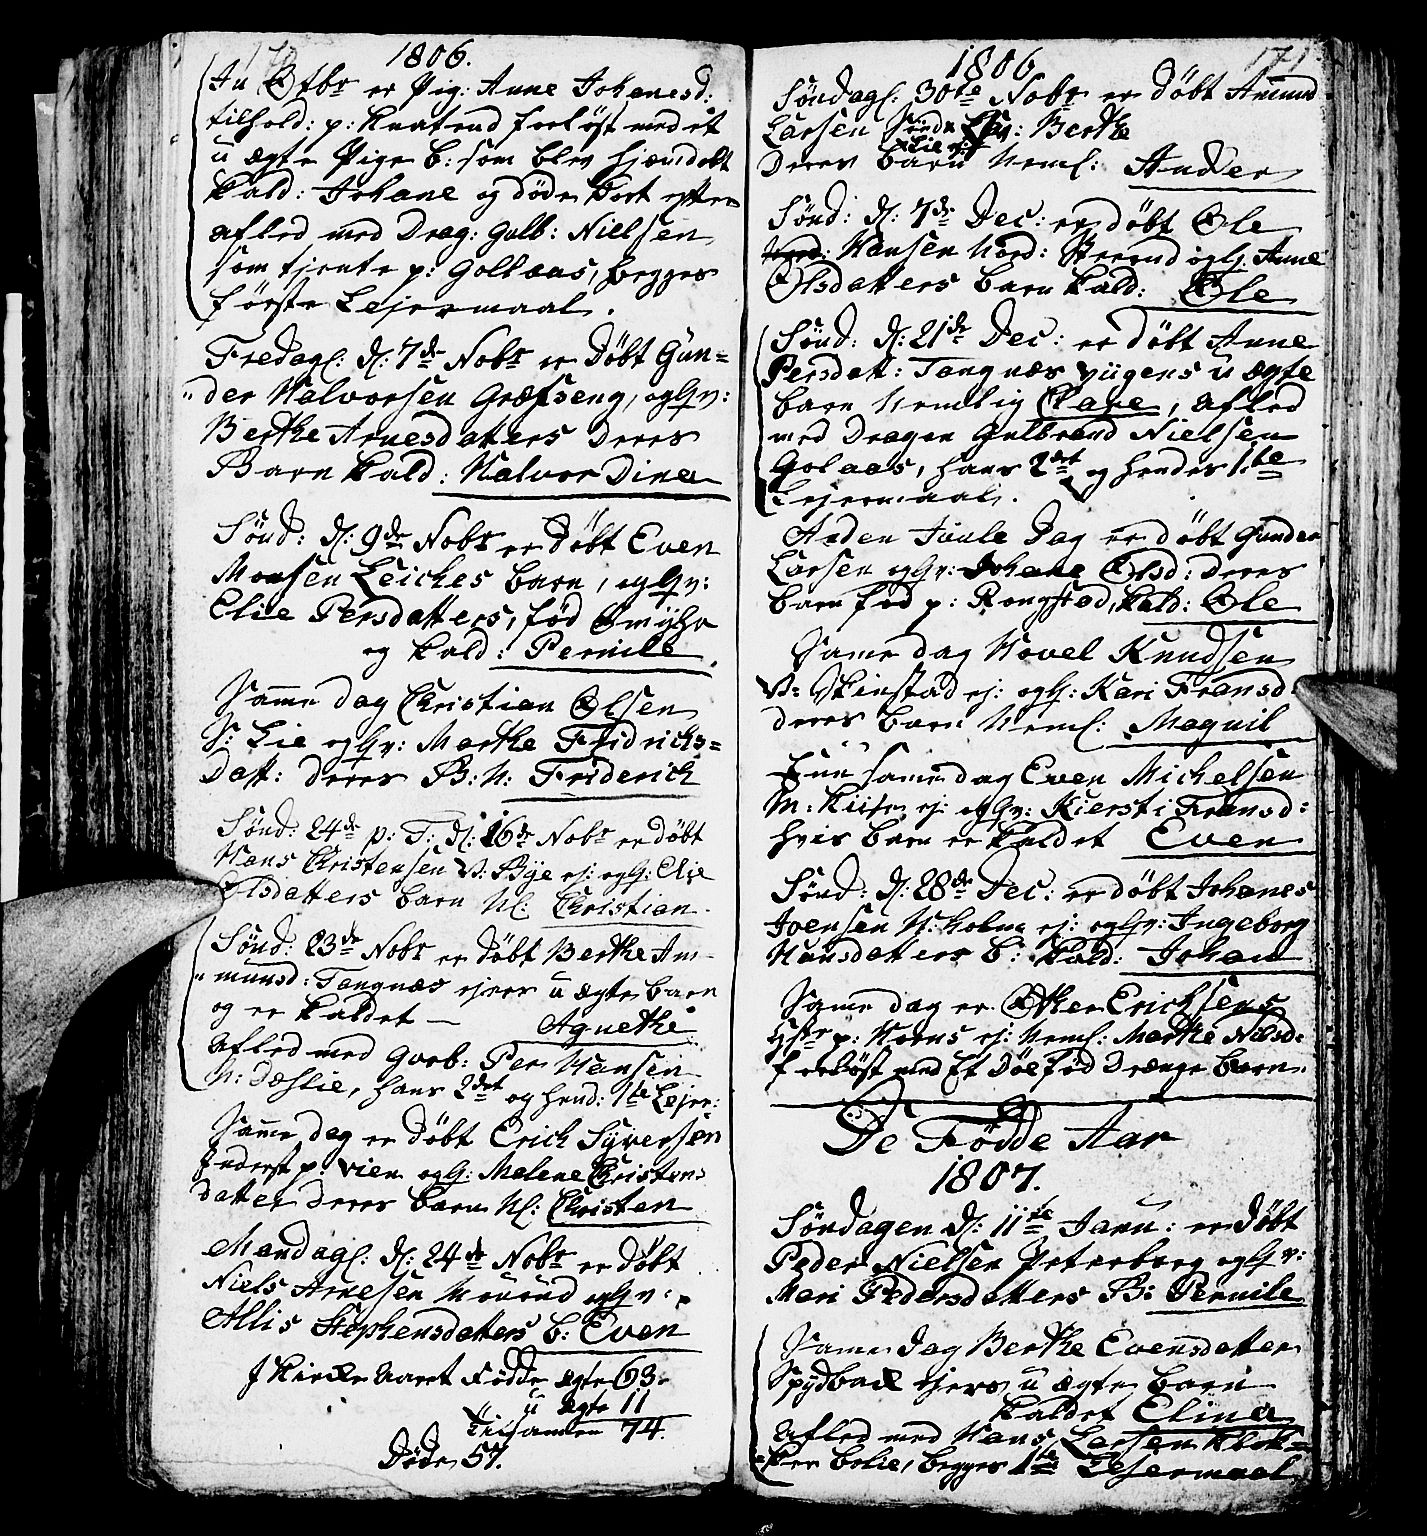 170
1806.
In Octbr er Pig: Anne Johanesd:
tilhold: p: Knatrud forløst med et
u ægte Pige b: som blev hjemdøbt
kald: Johane og døde bort efter
afled med Drag: Gulb: Nielsen
som tjente p: Golaas, begges
første Lejermaal.
Fredagl: d: 7de Nobr er døbt Gun=
der Halvorsen Græfseng, og Hv:
Berthe Arnesdatters deres
Barn kald: Halvor Dina
Sønd: d: 9de Nobr er døbt Even
Monsen Leiches barn, og Hv:
Elie Persdatters, fød
og kald: Pernile
Samme dag Christian Olsen
S: Lie og Hv: Marthe Fridrichs=
Datt: deres B: N: Friderich
Sønd: 24de p: T: d: 16de Nobr er døbt
Hans Christensen N: Bye ej: og H: Elie
Olsdatters barn Nl: Christian
Sønd: 23de Nobr er døbt Berthe Am=
munsd: Tangnæs ejers u ægte barn
og er kaldet — Agnethe
afled med Gvrb: Per Hansen
N: Dæhlie, hans 2det og hend: 1te Lejer:
Samme dag er døbt Erich Syversen
Inderst p: Vien og H: Malene Christens
datter deres barn Nl: Christen
Mandagl: d: 24de Nobr er døbt
Niels Arnesen og Hv:
Allis Stephensdatters b: Even
I Kirke Aaret Fødde ægte 63.
u ægte 11
tilsammen 74.
Døde 57.
1806
171
Søndagl: 30te Nobr er døbt Amund
Larsen Berthe
Lie ej:
Deres barn Neml: Ander
Sønd: d: 7de Dec: er døbt Ole
Hansen Nord: og H: Anne
Olsdatters barn kald: Ole
Sønd: d: 21de Dec: er døbt Anne
Persdatt: Tangnæs viigens u ægte
barn Nemlig Clare, afled
med Dragon Gulbrand Nielsen
Golaas, hans 2det og hendes 1te
Lejermaal.
Anden Juule Dag er døbt Gunder
Larsen og Hv: Johane Olsd: deres
barn fød p: Rongstad, kald: Ole
Same dag Hovel Knudsen
N: Skinstad ej: og H: Kari Fransd:
deres barn Neml: Magnil
same dag Even Michelsen
M: Kiise ej: og Hv: Kiersti Fransd:
hvis barn er kaldet Even
Sønd: d: 28de Dec: er døbt Johanes
Joensen N: Holme ej: og Hv: Ingeborg
Hansdatters b: kald: Johan
Same dag er Other Erichsens
Hstr p: Horns ej: Neml: Marthe Nilsd:
forløst med Et Døefød Drænge barn.
De Fødde Aar
1807.
Søndagen d: 11te Janu: er døbt
Peder Nielsen Peterborg og Hv:
Mari Pedersdatters B: Pernile
Same dag Berthe Evensdatter
Spydbak ejers u ægte barn
kaldet Elina
afled med Hans Larsen Klok=
ker bolie, begges 1te Lejermaal